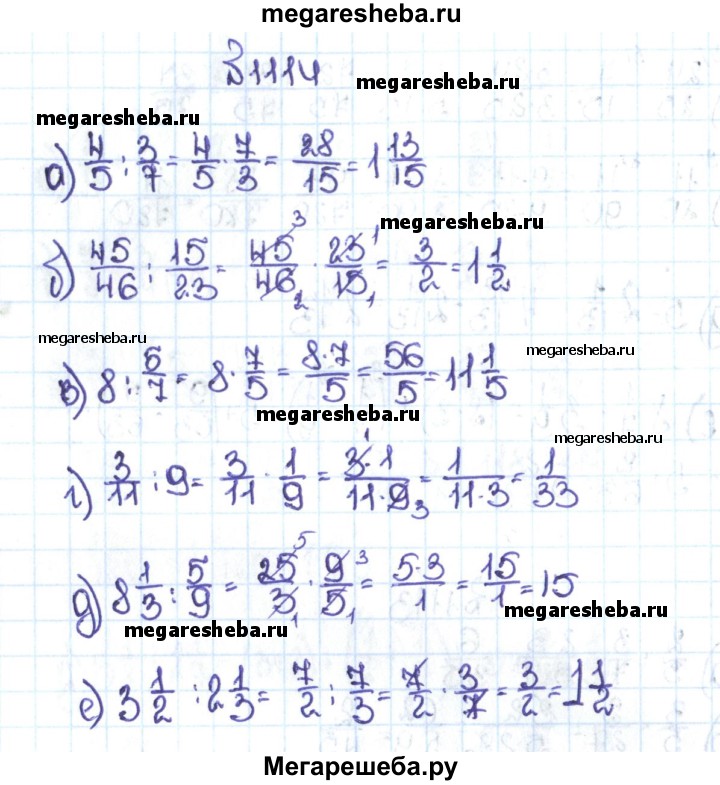 megaresheba.ru
№1114
megaresheba.ru
megaresheba.ru
а) 4/5 : 3/7 = 4/5 · 7/3 = 28/15 = 1 13/15
megaresheba.ru
б) 45/46 : 15/23 = 45 3/46 2 · 23 1/15 1 = 3/2 = 1 1/2
megaresheba.ru
megaresheba.ru
в) 8 : 5/7 = 8 · 7/5 = 8·7/5 = 56/5 = 11 1/5
megaresheba.ru
megaresheba.ru
г) 3/11 : 9 = 3/11 · 1/9 = 3 1·1/11·9 3 = 1/11·3 = 1/33
д) 8 1/3 : 5/9 = 25 5/3 1 · 9 3/5 1 = 5·3/1 = 15/1 = 15
megaresheba.ru
megaresheba.ru
е) 3 1/2 : 2 1/3 = 7/2 : 7/3 = 7/2 · 3/7 = 3/2 = 1 1/2
Мегарешеба.ру